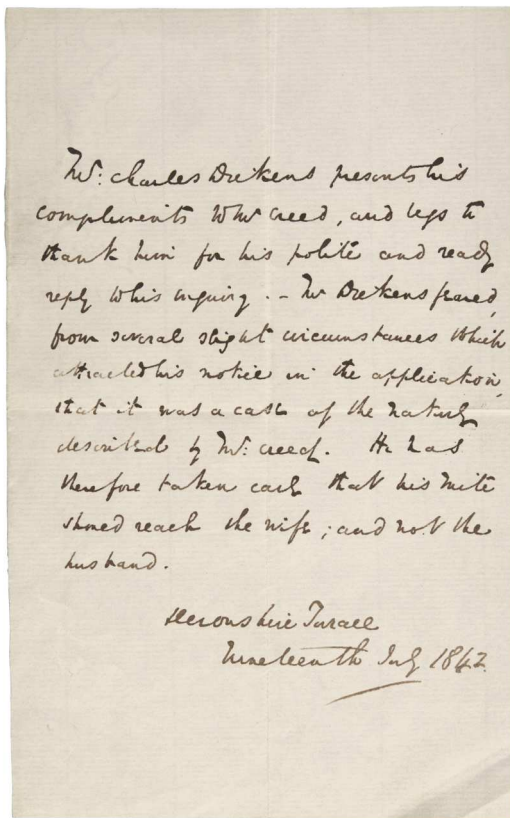 Mr. Charles Dickens presents his
compliments to Mr Creed, and begs to
thank him for his polite and ready
reply to his inquiry. – Mr Dickens feared,
from several slight circumstances which
attracted his notice in the application,
that it was a case of the nature
described by Mr. Creed. He has
therefore taken care that his mite
should reach the wife; and not the
husband.
Devonshire Terrace
Nineteenth July 1842.